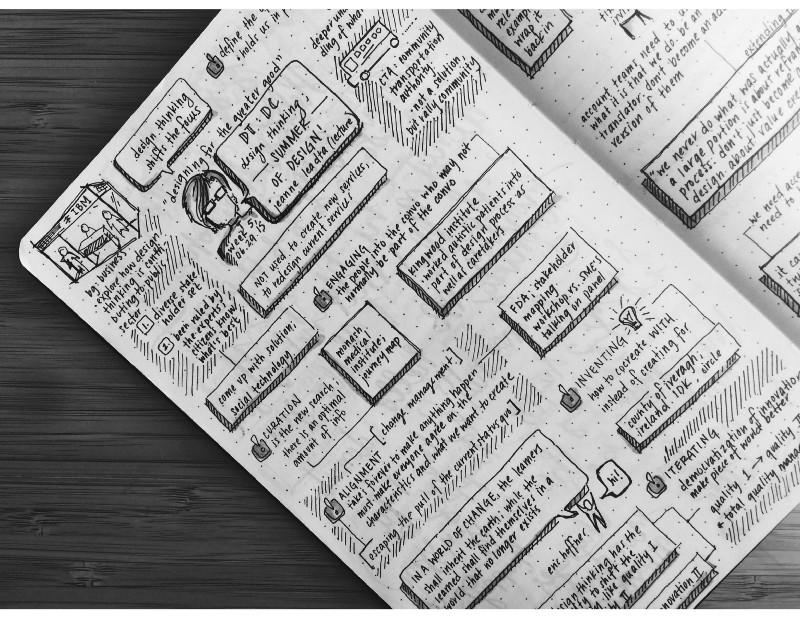 define the
"hold us in
deeper un
ding of wha
LTA: community
transportation
authority
- not a solution
but rally community
design thinking
shifts the focus
"designing for the greater good"
DT: DC
design thinking
SUMMEZ
OF DESIGN!
jeanne leadka (lecture)
02.09.15
# IBM
by business
explore how design
thinking is contri
buting to publ
sector
1. diverse stake
holder set
2. been ruled by
the experts /
citizens know
what is best
NOT used to create new services,
in redesign current service!
ENGAGING
the people into the convo who may not
normally be part of the convo
kingwood institute
worked autistic patients into
part of design process as
well as caretakers
FDA: stakeholder
mapping
workshop vs. SME's
talking on panel
come up with solution:
social technology
monash
medical
institute:
journey map
CURATION
is the new search;
there is an optimal
amount of info
INVENTING
how to cocreate WITH
instead of creating for
county of iveragh,
ireland, IDK, circle
ALIGNMENT
[change management]
take forever to make anything happen
must make everyone agree on the
characteristics and what we want to create
[escaping the pull of the current status quo]
IN A WORLD OF CHANGE, the learners
shall inherit the earth; while the
learned shall find themselves in a
world that no longer exists
eric hoffner
hi
ITERATING
democratization of innovation
make piece of world better
quality I → quality
* total quality mana
design thinking has the
to shift the
like quality I
II
innovation II
example
wrap it
back in
account teams need to u
what it is that we do: be an
translator, don't become an ac
version of them
extending
"we never do what was actually
a large portion is about refra
process; don't just become
design. about value cre
we need
need to
it ca
typ